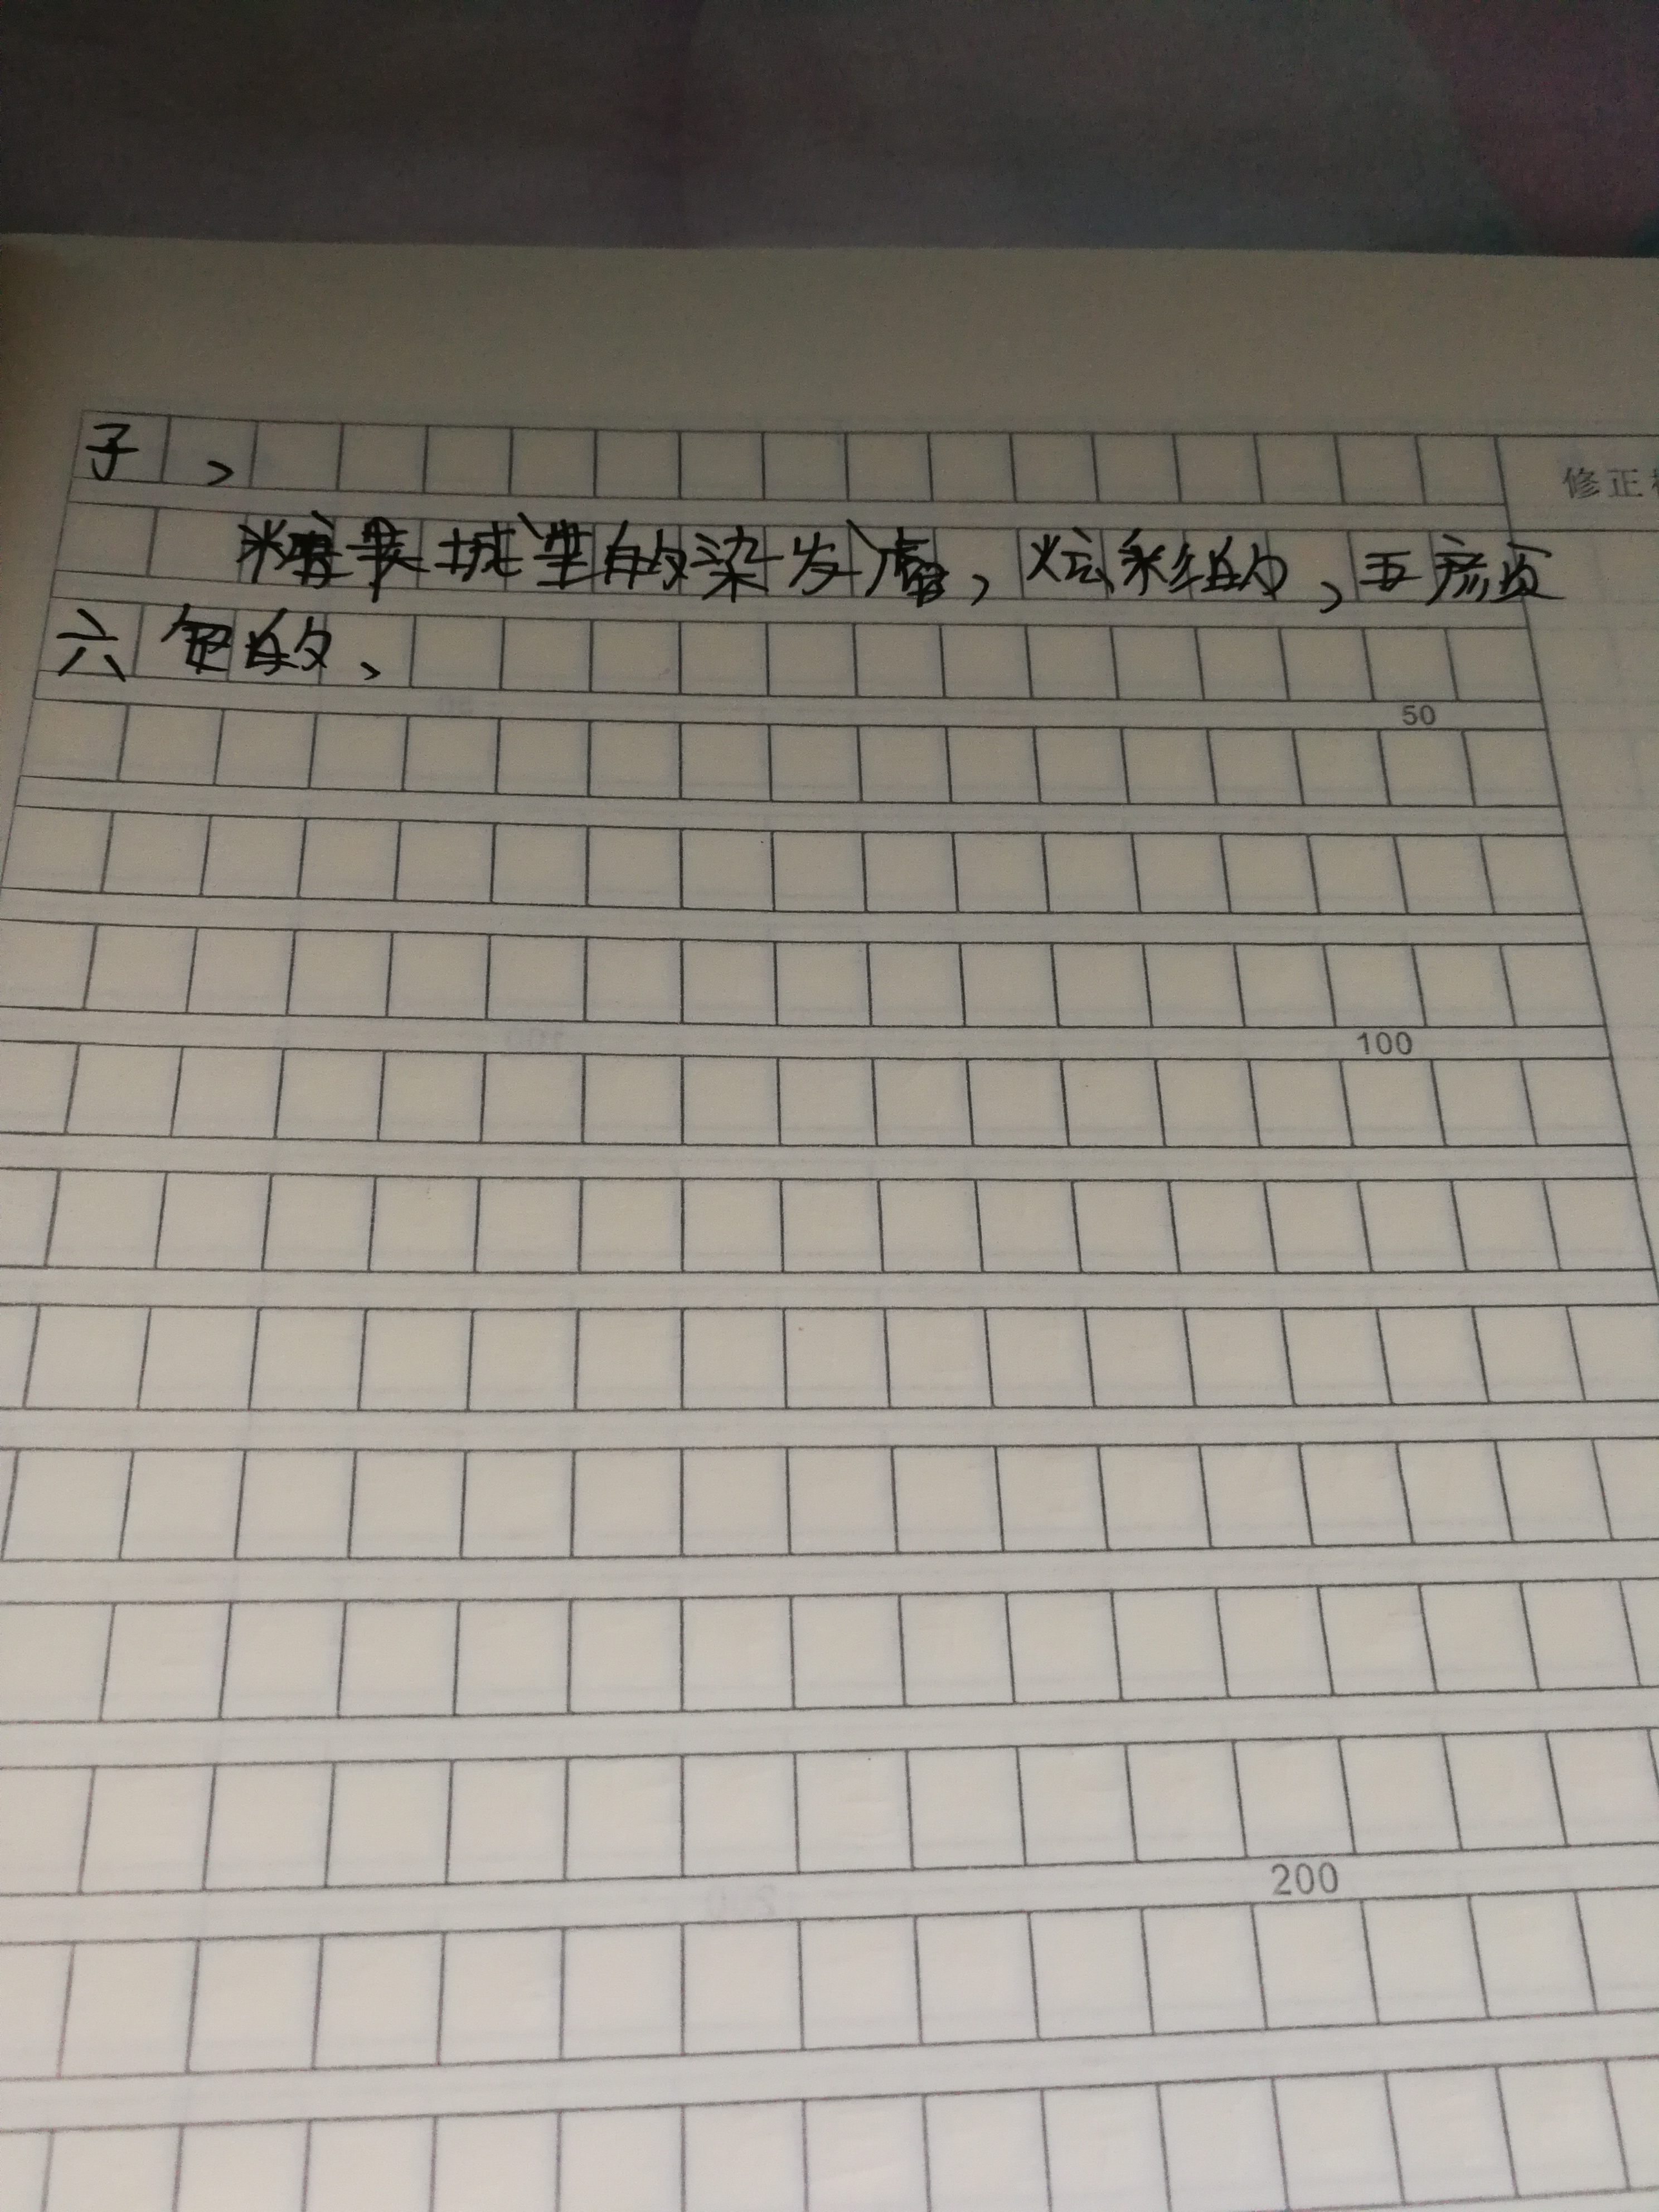 子、
修正
糖果城堡的染发膏，炫彩的，五颜
六色的、
50
100
200